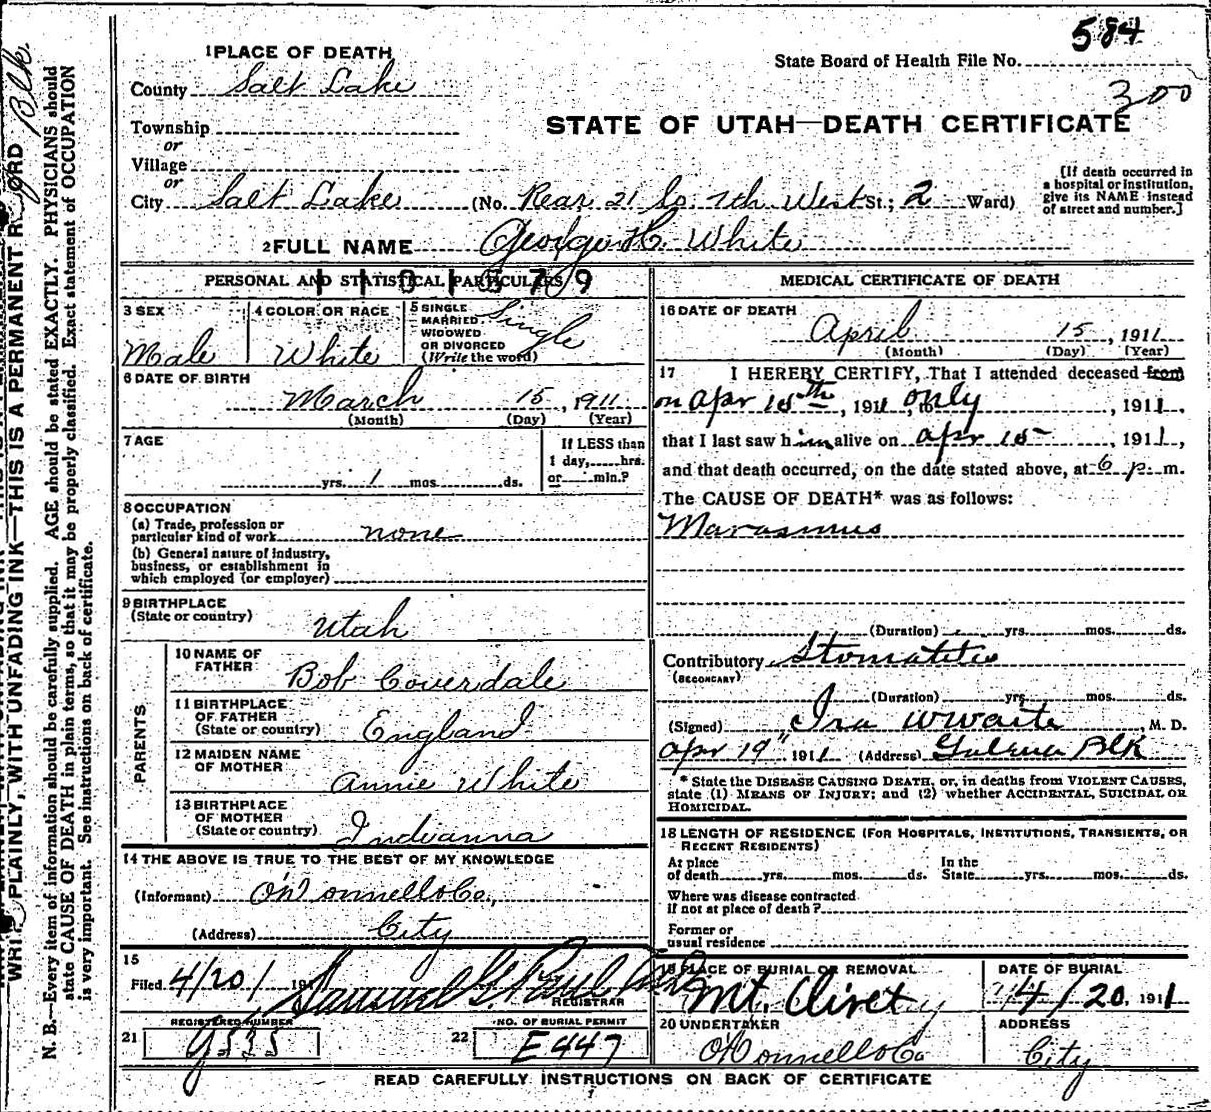 584
State Board of Health File No.
300
1 PLACE OF DEATH
County Salt Lake
STATE OF UTAH—DEATH CERTIFICATE
Township
or
Village
or
City Salt Lake (No. Rear 21 So. 7th West St.; 2 Ward)
[If death occurred in
a hospital or institution,
give its NAME instead
of street and number.]
2 FULL NAME George H. White
PERSONAL AND STATISTICAL PARTICULARS
3 SEX
Male
4 COLOR OR RACE
White
5 SINGLE
MARRIED
WIDOWED
OR DIVORCED
(Write the word)
Single
6 DATE OF BIRTH
March 15, 1911
(Month) (Day) (Year)
7 AGE
yrs. 1 mos. ds.
If LESS than
1 day, hrs.
or min.?
8 OCCUPATION
(a) Trade, profession or
particular kind of work none
(b) General nature of industry,
business, or establishment in
which employed (or employer)
9 BIRTHPLACE
(State or country) Utah
PARENTS
10 NAME OF
FATHER Bob Coverdale
11 BIRTHPLACE
OF FATHER
(State or country) England
12 MAIDEN NAME
OF MOTHER Annie White
13 BIRTHPLACE
OF MOTHER
(State or country) Indianna
14 THE ABOVE IS TRUE TO THE BEST OF MY KNOWLEDGE
(Informant) O'Donnell & Co.,
(Address) City
15
Filed 4/20/ 191 Samuel G. Paul
REGISTRAR
REGISTERED NUMBER
21 G535
NO. OF BURIAL PERMIT
22 E447
MEDICAL CERTIFICATE OF DEATH
16 DATE OF DEATH
April 15, 1911
(Month) (Day) (Year)
17 I HEREBY CERTIFY, That I attended deceased from
on Apr 15th, 1911, to only, 1911,
that I last saw him alive on Apr 15, 1911,
and that death occurred, on the date stated above, at 6 p. m.
The CAUSE OF DEATH* was as follows:
Marasmus
(Duration) yrs. mos. ds.
Contributory Stomatitis
(SECONDARY)
(Duration) yrs. mos. ds.
(Signed) Ira W Waite, M. D.
Apr 19" 1911 (Address) Galena Blk
* State the DISEASE CAUSING DEATH, or, in deaths from VIOLENT CAUSES,
state (1) MEANS OF INJURY; and (2) whether ACCIDENTAL, SUICIDAL OR
HOMICIDAL.
18 LENGTH OF RESIDENCE (FOR HOSPITALS, INSTITUTIONS, TRANSIENTS, OR
RECENT RESIDENTS)
At place
of death yrs. mos. ds.
In the
State yrs. mos. ds.
Where was disease contracted
if not at place of death?
Former or
usual residence
19 PLACE OF BURIAL OR REMOVAL
Mt. Olivet
DATE OF BURIAL
4/20, 1911
20 UNDERTAKER
O'Donnell & Co
ADDRESS
City
READ CAREFULLY INSTRUCTIONS ON BACK OF CERTIFICATE
PLAINLY, WITH UNFADING INK—THIS IS A PERMANENT RECORD
Blk
N. B.—Every item of information should be carefully supplied. AGE should be stated EXACTLY. PHYSICIANS should
state CAUSE OF DEATH in plain terms, so that it may be properly classified. Exact statement of OCCUPATION
is very important. See instructions on back of certificate.